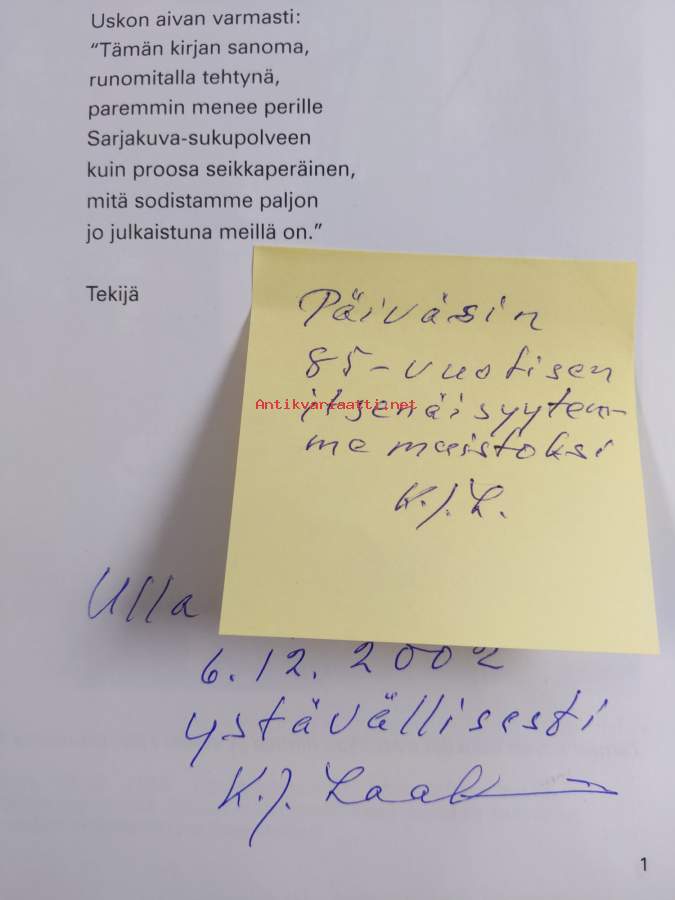 Uskon aivan varmasti:
“Tämän kirjan sanoma,
runomitalla tehtynä,
paremmin menee perille
Sarjakuva-sukupolveen
kuin proosa seikkaperäinen,
mitä sodistamme paljon
jo julkaistuna meillä on.”
Tekijä
Päiväsin
85-vuotisen
Antikvariaatti.net
itsenäisyytem-
me muistoksi
K.J.L.
Ulla
6.12.2002
ystävällisesti
K.J. Laak
1